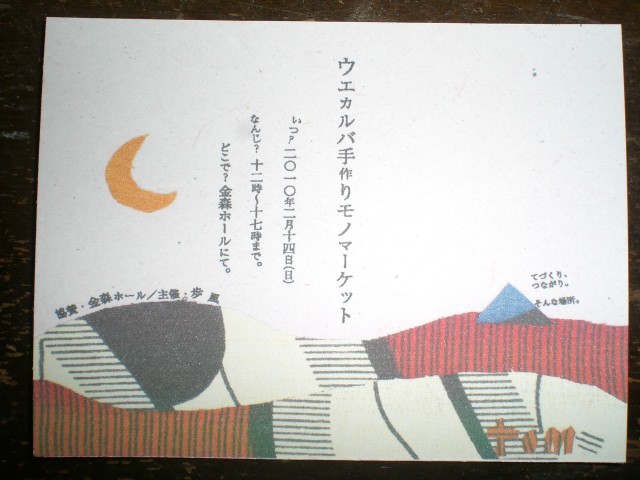 ウエカルバ手作りモノマーケット
いつ?二〇一〇年二月十四日(日)
なんじ?十二時～十七時まで。
どこで?金森ホールにて。
てづくり、
つながり。
そんな場所。
協賛・金森ホール/主催・歩風